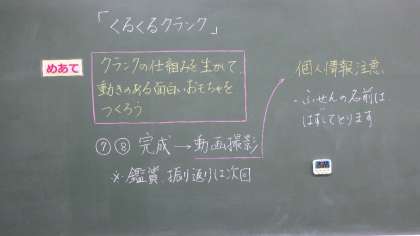 「くるくるクランク」
めあて
クランクの仕組みを生かして、
動きのある面白いおもちゃを
つくろう
⑦⑧ 完成→動画撮影
※鑑賞、振り返りは次回
個人情報注意
・ふせんの名前は、
はずしてとります